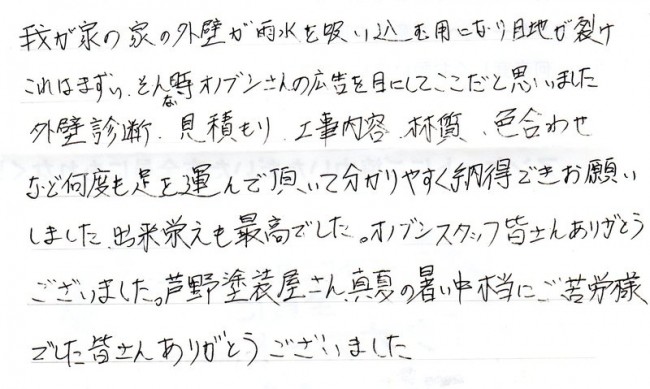 我が家の家の外壁が雨水を吸い込む用になり目地が裂け
これはまずい、そんな時オノブンさんの広告を目にしてここだと思いました
外壁診断、見積もり、工事内容、材質、色合わせ
など何度も足を運んで頂いて分かりやすく納得できお願い
しました、出来栄えも最高でした。オノブンスタッフ皆さんありがとう
ございました。芦野塗装屋さん、真夏の暑い中本当にご苦労様
でした皆さんありがとうございました